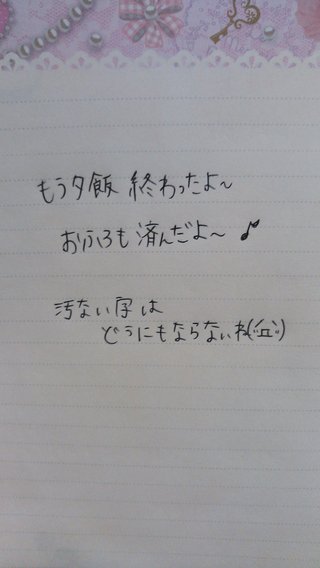 もう夕飯 終わったよ~
おふろも 済んだよ~ ♪
汚ない字は
どうにもならないね(;´Д`)